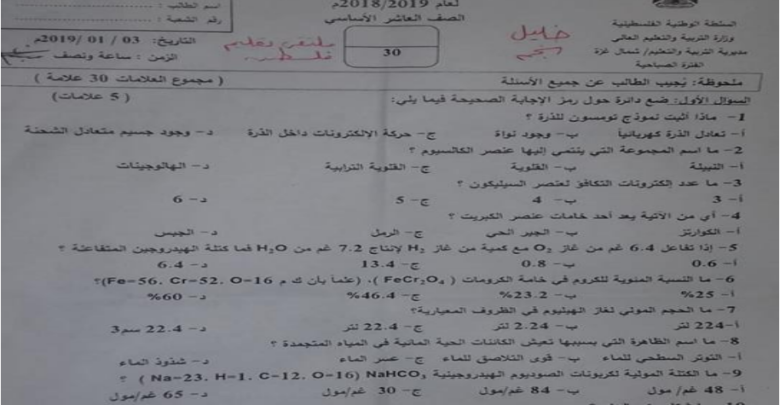 السلطة الوطنية الفلسطينية
وزارة التربية والتعليم العالي
مديرية التربية والتعليم/ شمال غزة
الفترة الصباحية
لعام 2018/2019م
الصف العاشر الأساسي
30
خليل
ملتقى
اسم الطالب :
رقم الشعبة :
التاريخ: 03 / 01 /2019م
الزمن : ساعة ونصف
ملحوظة: يُجيب الطالب عن جميع الأسئلة ( مجموع العلامات 30 علامة )
السؤال الأول: ضع دائرة حول رمز الإجابة الصحيحة فيما يلي: ( 5 علامات)
1- ماذا أثبت نموذج تومسون للذرة ؟
أ- تعادل الذرة كهربائياً ب- وجود نواة ج- حركة الالكترونات داخل الذرة د- وجود جسيم متعادل الشحنة
2- ما اسم المجموعة التي ينتمي إليها عنصر الكالسيوم ؟
أ- النبيلة ب- القلوية ج- القلوية الترابية د- الهالوجينات
3- ما عدد إلكترونات التكافؤ لعنصر السيليكون ؟
أ- 3 ب- 4 ج- 5 د- 6
4- أي من الآتية يعد أحد خامات عنصر الكبريت ؟
أ- الكوارتز ب- الجير الحي ج- الرمل د- الجبس
5- إذا تفاعل 6.4 غم من غاز O₂ مع كمية من غاز H₂ لإنتاج 7.2 غم من H₂O فما كتلة الهيدروجين المتفاعلة ؟
أ- 0.6 ب- 0.8 ج- 13.4 د- 6.4
6- ما النسبة المئوية للكروم في خامة الكرومات ( FeCr₂O₄ )، (علماً بأن ك م Fe-56, Cr-52, O-16)؟
أ- 25% ب- 23.2% ج- 46.4% د- 60%
7- ما الحجم المولي لغاز الهيليوم في الظروف المعيارية؟
أ- 224 لتر ب- 2.24 لتر ج- 22.4 لتر د- 22.4 سم3
8- ما اسم الظاهرة التي بسببها تعيش الكائنات الحية المائية في المياه المتجمدة ؟
أ- التوتر السطحي للماء ب- قوى التلاصق للماء ج- عسر الماء د- شذوذ الماء
9- ما الكتلة المولية لكربونات الصوديوم الهيدروجينية NaHCO₃ (Na-23, H-1, C-12, O-16 ) ؟
أ- 48 غم/ مول ب- 84 غم/مول ج- 30 غم/مول د- 65 غم/مول